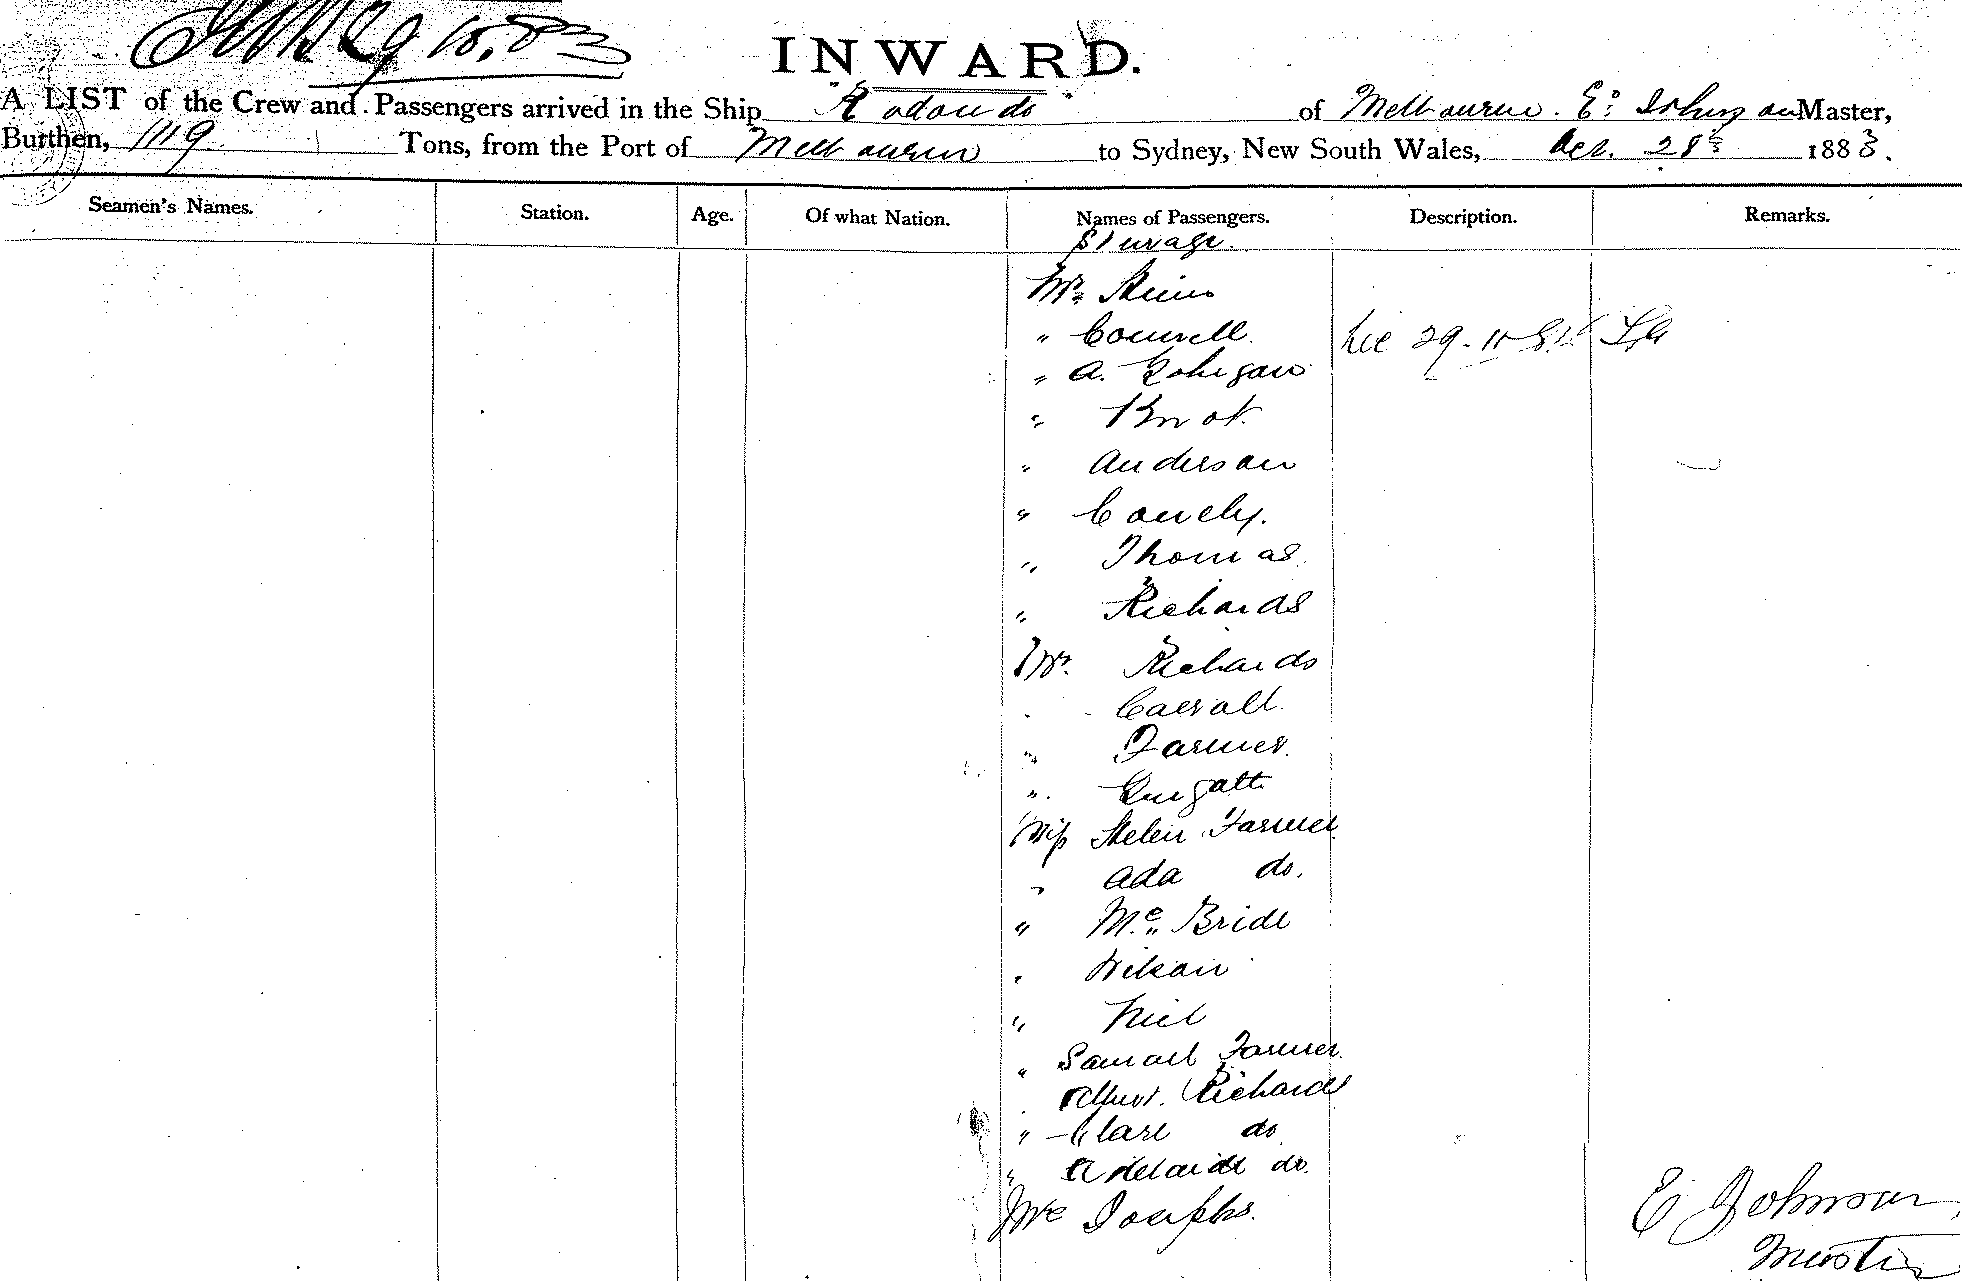 29.10.83
INWARD.
A LIST of the Crew and Passengers arrived in the Ship "Rodondo" of Melbourne. E: Johnson Master,
Burthen, 1119 Tons, from the Port of Melbourne to Sydney, New South Wales, Oct. 28th 1883.
Seamen's Names. Station. Age. Of what Nation. Names of Passengers. Description. Remarks.
Steerage.
Mr.
"
" A.
" Knot.
" Anderson
" Conely.
" Thomas
" Richards
Mrs. Richards
Carroll.
" Farmer.
"
Miss Helen Farmer
" Ada do.
" Mc. Bride
" Wilson
" Niel
" Samuel Farmer.
Albert. Richards
" Clare do
" Adelaide do.
Josephs.
E Johnson
Master